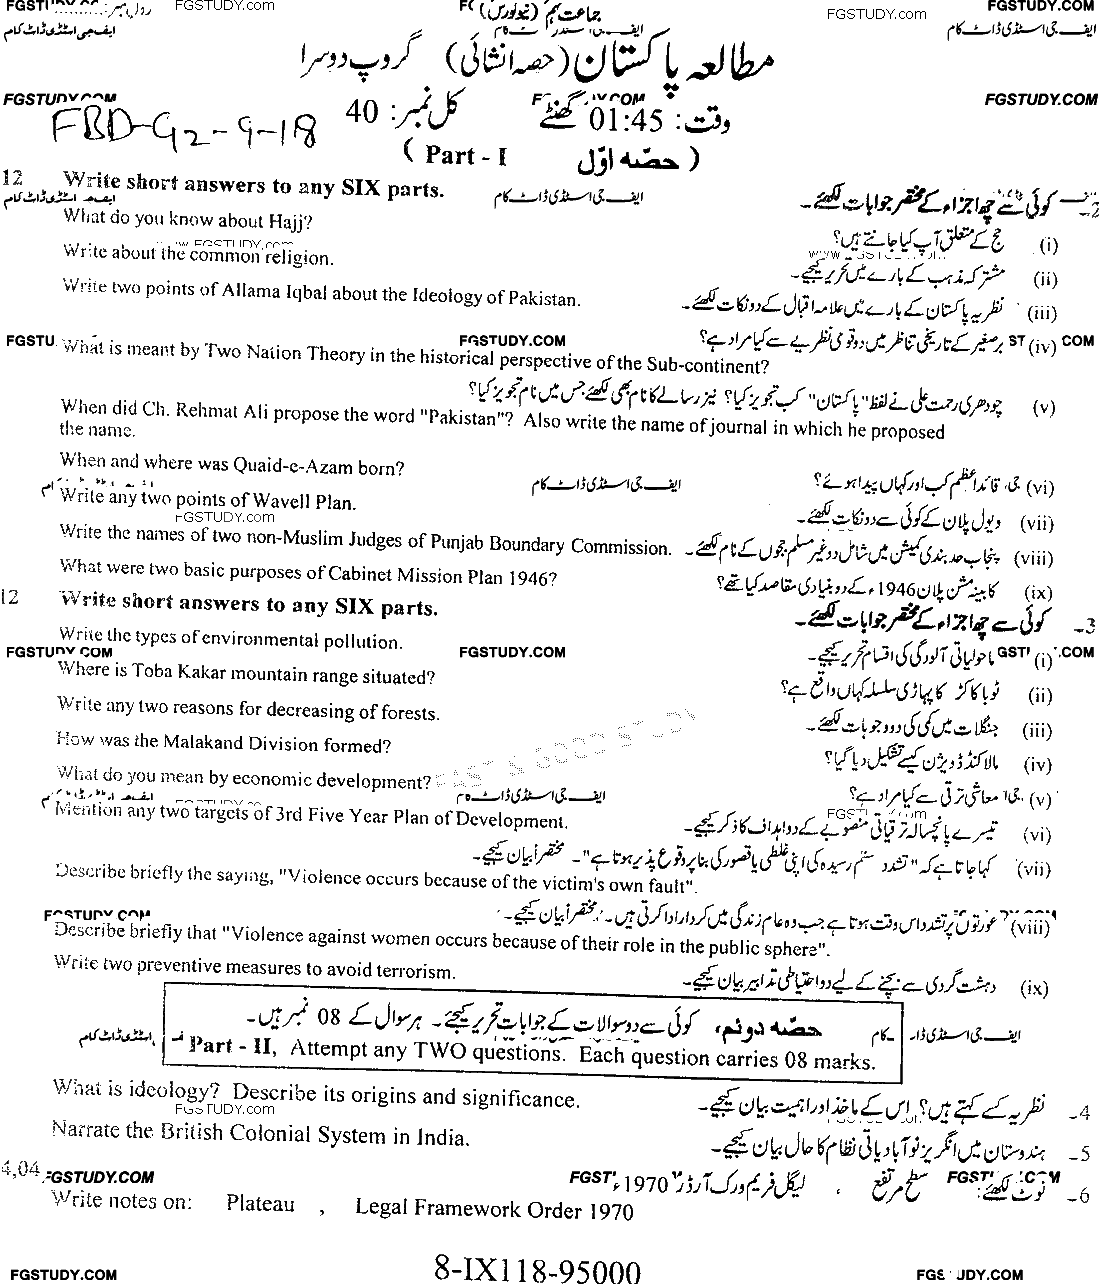 FGSTUDY.COM FGSTUDY.COM FGSTUDY.COM
رول نمبر: جماعت نہم (نیو کورس)
ایف جی اسٹڈی ڈاٹ کام ایف جی اسٹڈی ڈاٹ کام
مطالعہ پاکستان (حصہ انشائی) گروپ دوسرا
FGSTUDY.COM FGSTUDY.COM
وقت: 01:45 گھنٹے کل نمبر: 40
FBD-G2-9-18
(حصّہ اوّل Part - I)
2ـ کوئی سے چھ اجزاء کے مختصر جوابات لکھئے۔
12 Write short answers to any SIX parts.
ایف جی اسٹڈی ڈاٹ کام
(i) حج کے متعلق آپ کیا جانتے ہیں؟
What do you know about Hajj?
(ii) مشترکہ مذہب کے بارے میں تحریر کیجیے۔
Write about the common religion.
(iii) نظریہ پاکستان کے بارے میں علامہ اقبال کے دو نکات لکھئے۔
Write two points of Allama Iqbal about the Ideology of Pakistan.
FGSTUDY.COM
(iv) برصغیر کے تاریخی تناظر میں دو قومی نظریے سے کیا مراد ہے؟
What is meant by Two Nation Theory in the historical perspective of the Sub-continent?
(v) چودھری رحمت علی نے لفظ "پاکستان" کب تجویز کیا؟ نیز رسالے کا نام بھی لکھئے جس میں نام تجویز کیا؟
When did Ch. Rehmat Ali propose the word "Pakistan"? Also write the name of journal in which he proposed
the name.
(vi) قائداعظم کب اور کہاں پیدا ہوئے؟
When and where was Quaid-e-Azam born?
ایف جی اسٹڈی ڈاٹ کام
(vii) ویول پلان کے کوئی سے دو نکات لکھئے۔
Write any two points of Wavell Plan.
FGSTUDY.com
(viii) پنجاب حد بندی کمیشن میں شامل دو غیر مسلم ججوں کے نام لکھئے۔
Write the names of two non-Muslim Judges of Punjab Boundary Commission.
(ix) کابینہ مشن پلان 1946ء کے دو بنیادی مقاصد کیا تھے؟
What were two basic purposes of Cabinet Mission Plan 1946?
3ـ کوئی سے چھ اجزاء کے مختصر جوابات لکھئے۔
12 Write short answers to any SIX parts.
(i) ماحولیاتی آلودگی کی اقسام تحریر کیجیے۔
Write the types of environmental pollution.
FGSTUDY.COM FGSTUDY.COM
(ii) ٹوبا کاکڑ کا پہاڑی سلسلہ کہاں واقع ہے؟
Where is Toba Kakar mountain range situated?
(iii) جنگلات میں کمی کی دو وجوہات لکھئے۔
Write any two reasons for decreasing of forests.
(iv) مالاکنڈ ڈویژن کیسے تشکیل دیا گیا؟
How was the Malakand Division formed?
(v) معاشی ترقی سے کیا مراد ہے؟
What do you mean by economic development?
ایف جی اسٹڈی ڈاٹ کام
(vi) تیسرے پانچسالہ ترقیاتی منصوبے کے دو اہداف کا ذکر کیجیے۔
Mention any two targets of 3rd Five Year Plan of Development.
(vii) کہا جاتا ہے کہ "تشدد ستم رسیدہ کی اپنی غلطی یا قصور کی بنا پر وقوع پذیر ہوتا ہے"۔ مختصراً بیان کیجیے۔
Describe briefly the saying, "Violence occurs because of the victim's own fault".
FGSTUDY.COM
(viii) عورتوں پر تشدد اس وقت ہوتا ہے جب وہ عام زندگی میں کردار ادا کرتی ہیں۔ مختصراً بیان کیجیے۔
Describe briefly that "Violence against women occurs because of their role in the public sphere".
(ix) دہشت گردی سے بچنے کے لیے دو احتیاطی تدابیر بیان کیجیے۔
Write two preventive measures to avoid terrorism.
حصّہ دوئم، کوئی سے دو سوالات کے جوابات تحریر کیجیئے۔ ہر سوال کے 08 نمبر ہیں۔
Part - II, Attempt any TWO questions. Each question carries 08 marks.
4ـ نظریہ کسے کہتے ہیں؟ اس کے ماخذ اور اہمیت بیان کیجیے۔
What is ideology? Describe its origins and significance.
FGSTUDY.com
5ـ ہندوستان میں انگریز نوآبادیاتی نظام کا حال بیان کیجیے۔
Narrate the British Colonial System in India.
FGSTUDY.COM
6ـ نوٹ لکھئے: سطح مرتفع ، لیگل فریم ورک آرڈر 1970ء
4,04 Write notes on: Plateau , Legal Framework Order 1970
8-IX118-95000
FGSTUDY.COM